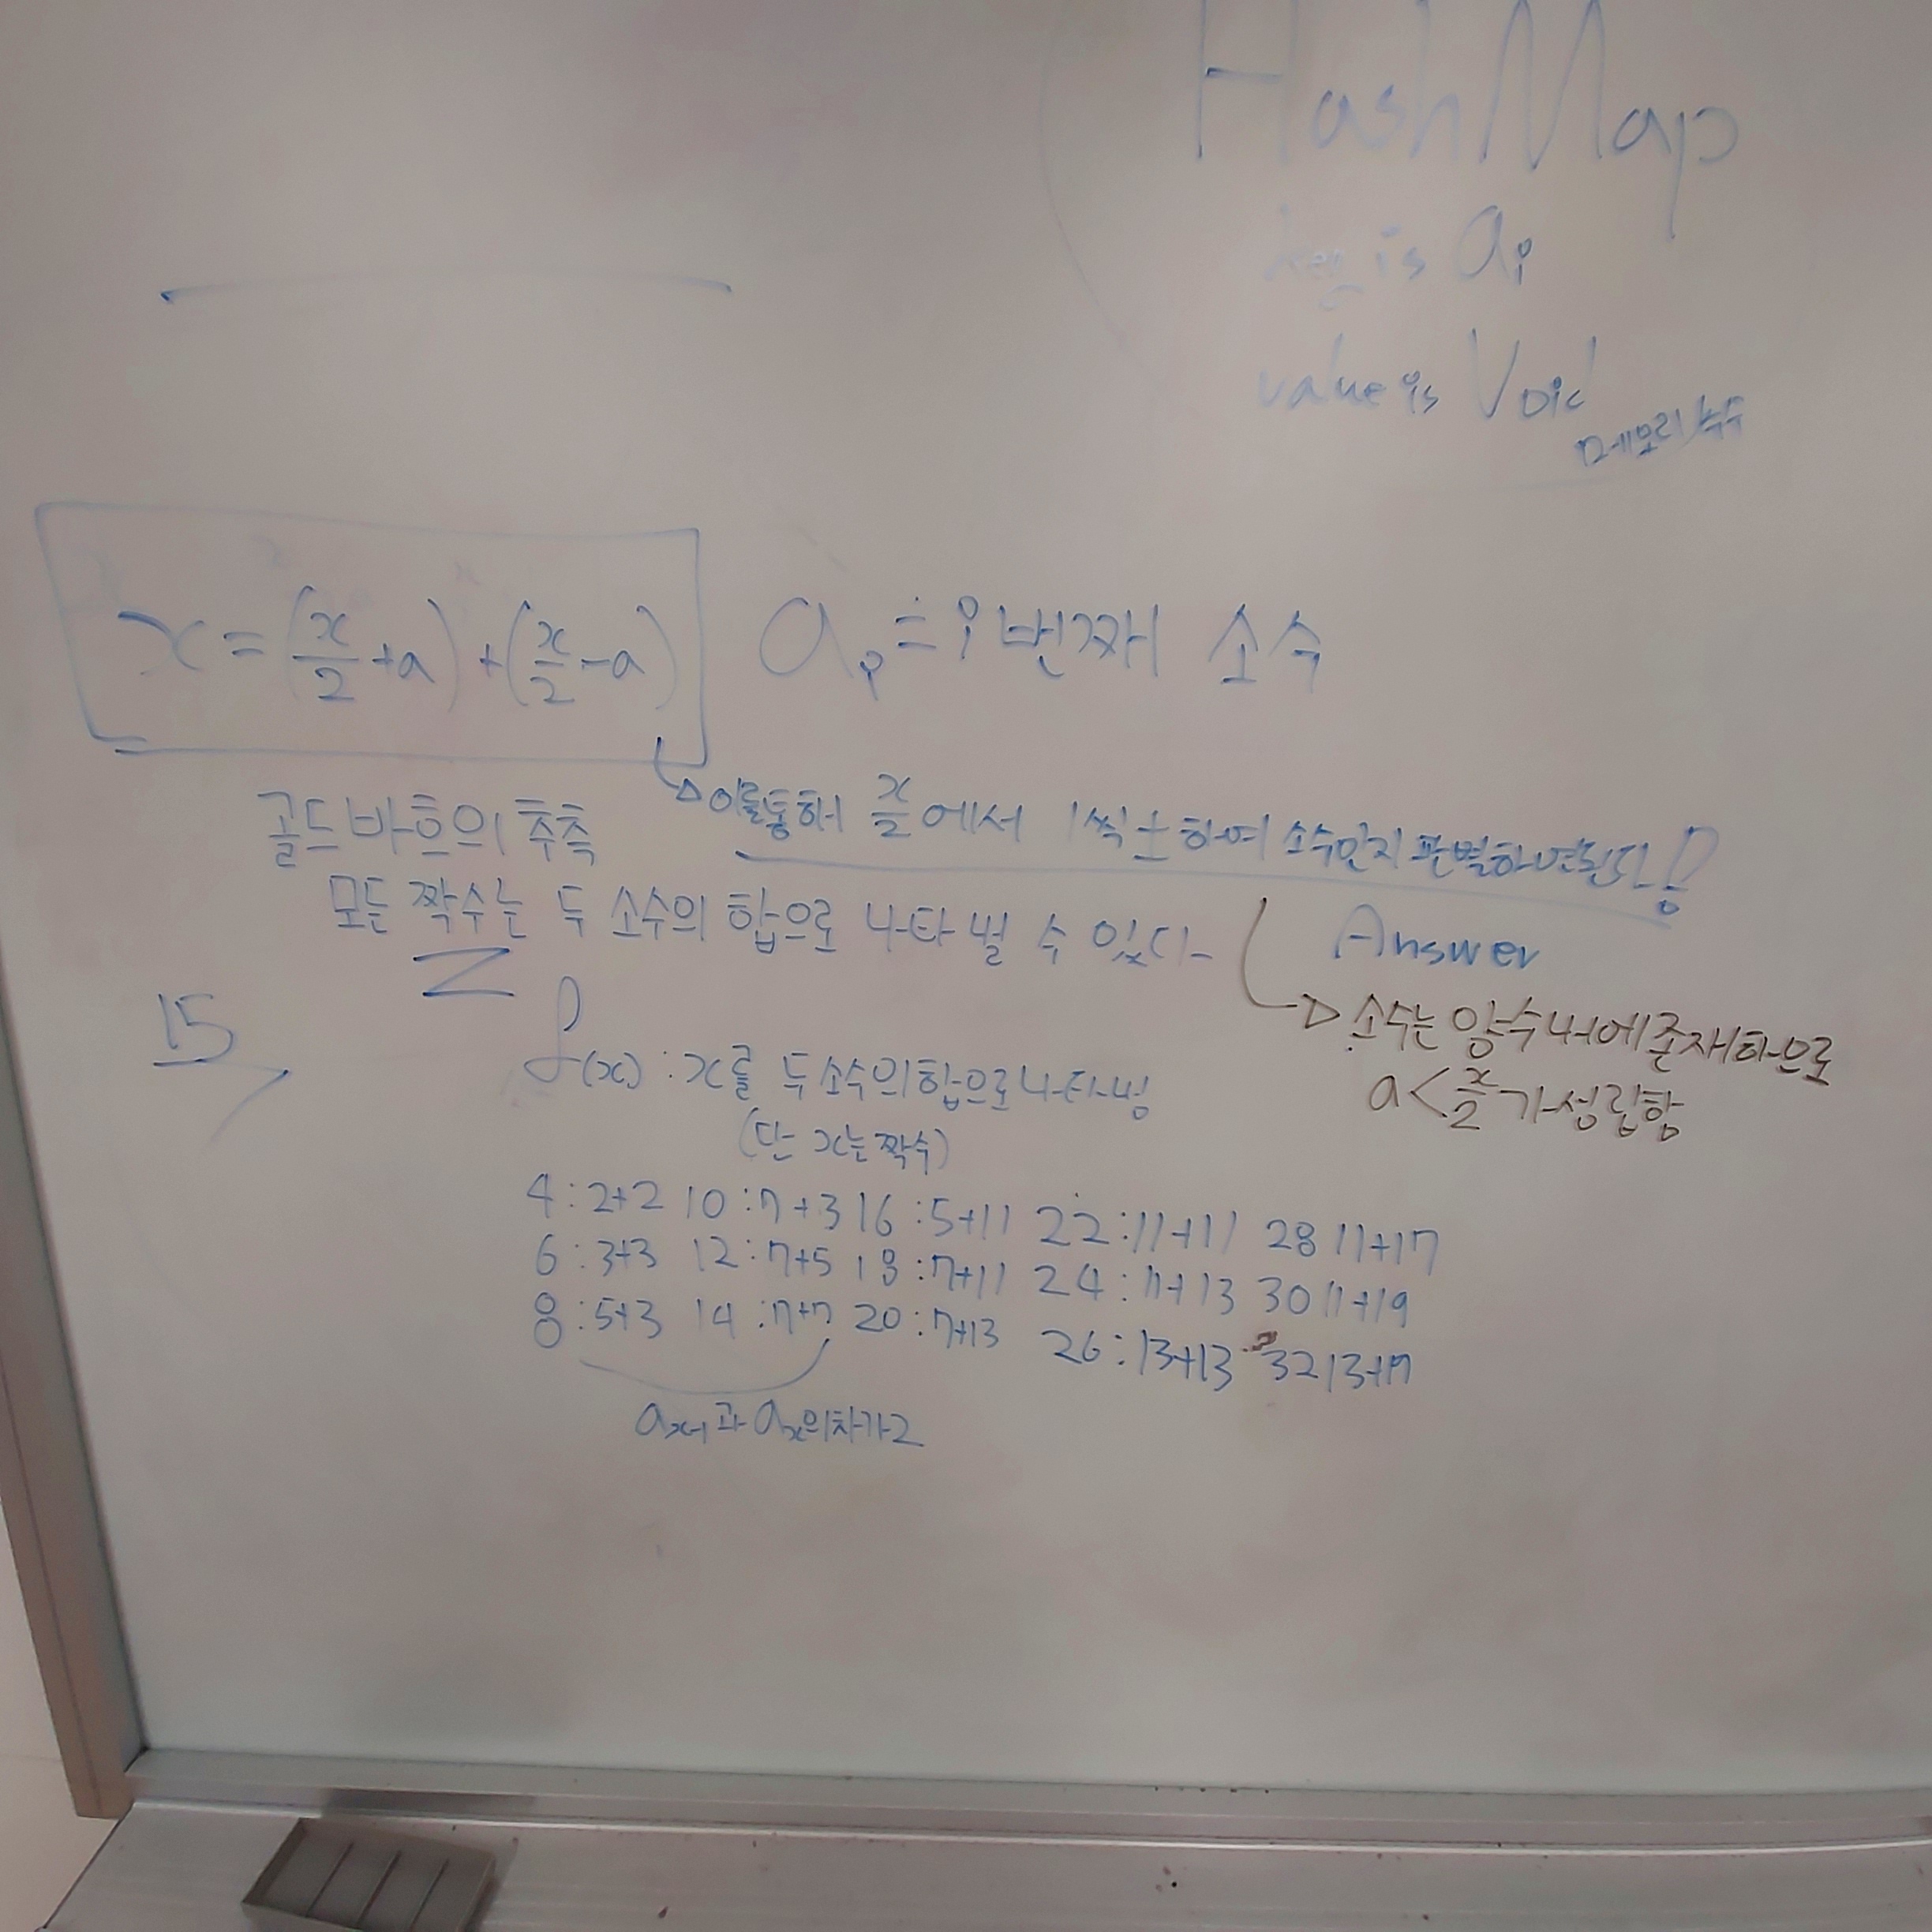 HashMap
key is aᵢ
value is Void
메모리 누수
x = (x/2 + a) + (x/2 - a)
aᵢ = i번째 소수
이를통해 x/2에서 1씩 ±하여 소수인지 판별하면된다!
골드바흐의 추측
모든 짝수는 두 소수의 합으로 나타낼 수 있다
Answer
소수는 양수내에 존재하므로
a < x/2 가 성립함
15
f(x) : x를 두 소수의 합으로 나타냄
(단 x는 짝수)
4 : 2+2 10 : 7+3 16 : 5+11 22 : 11+11 28 11+17
6 : 3+3 12 : 7+5 18 : 7+11 24 : 11+13 30 11+19
8 : 5+3 14 : 7+7 20 : 7+13 26 : 13+13 32 13+19
aₓ₋₁과 aₓ의 차가 2